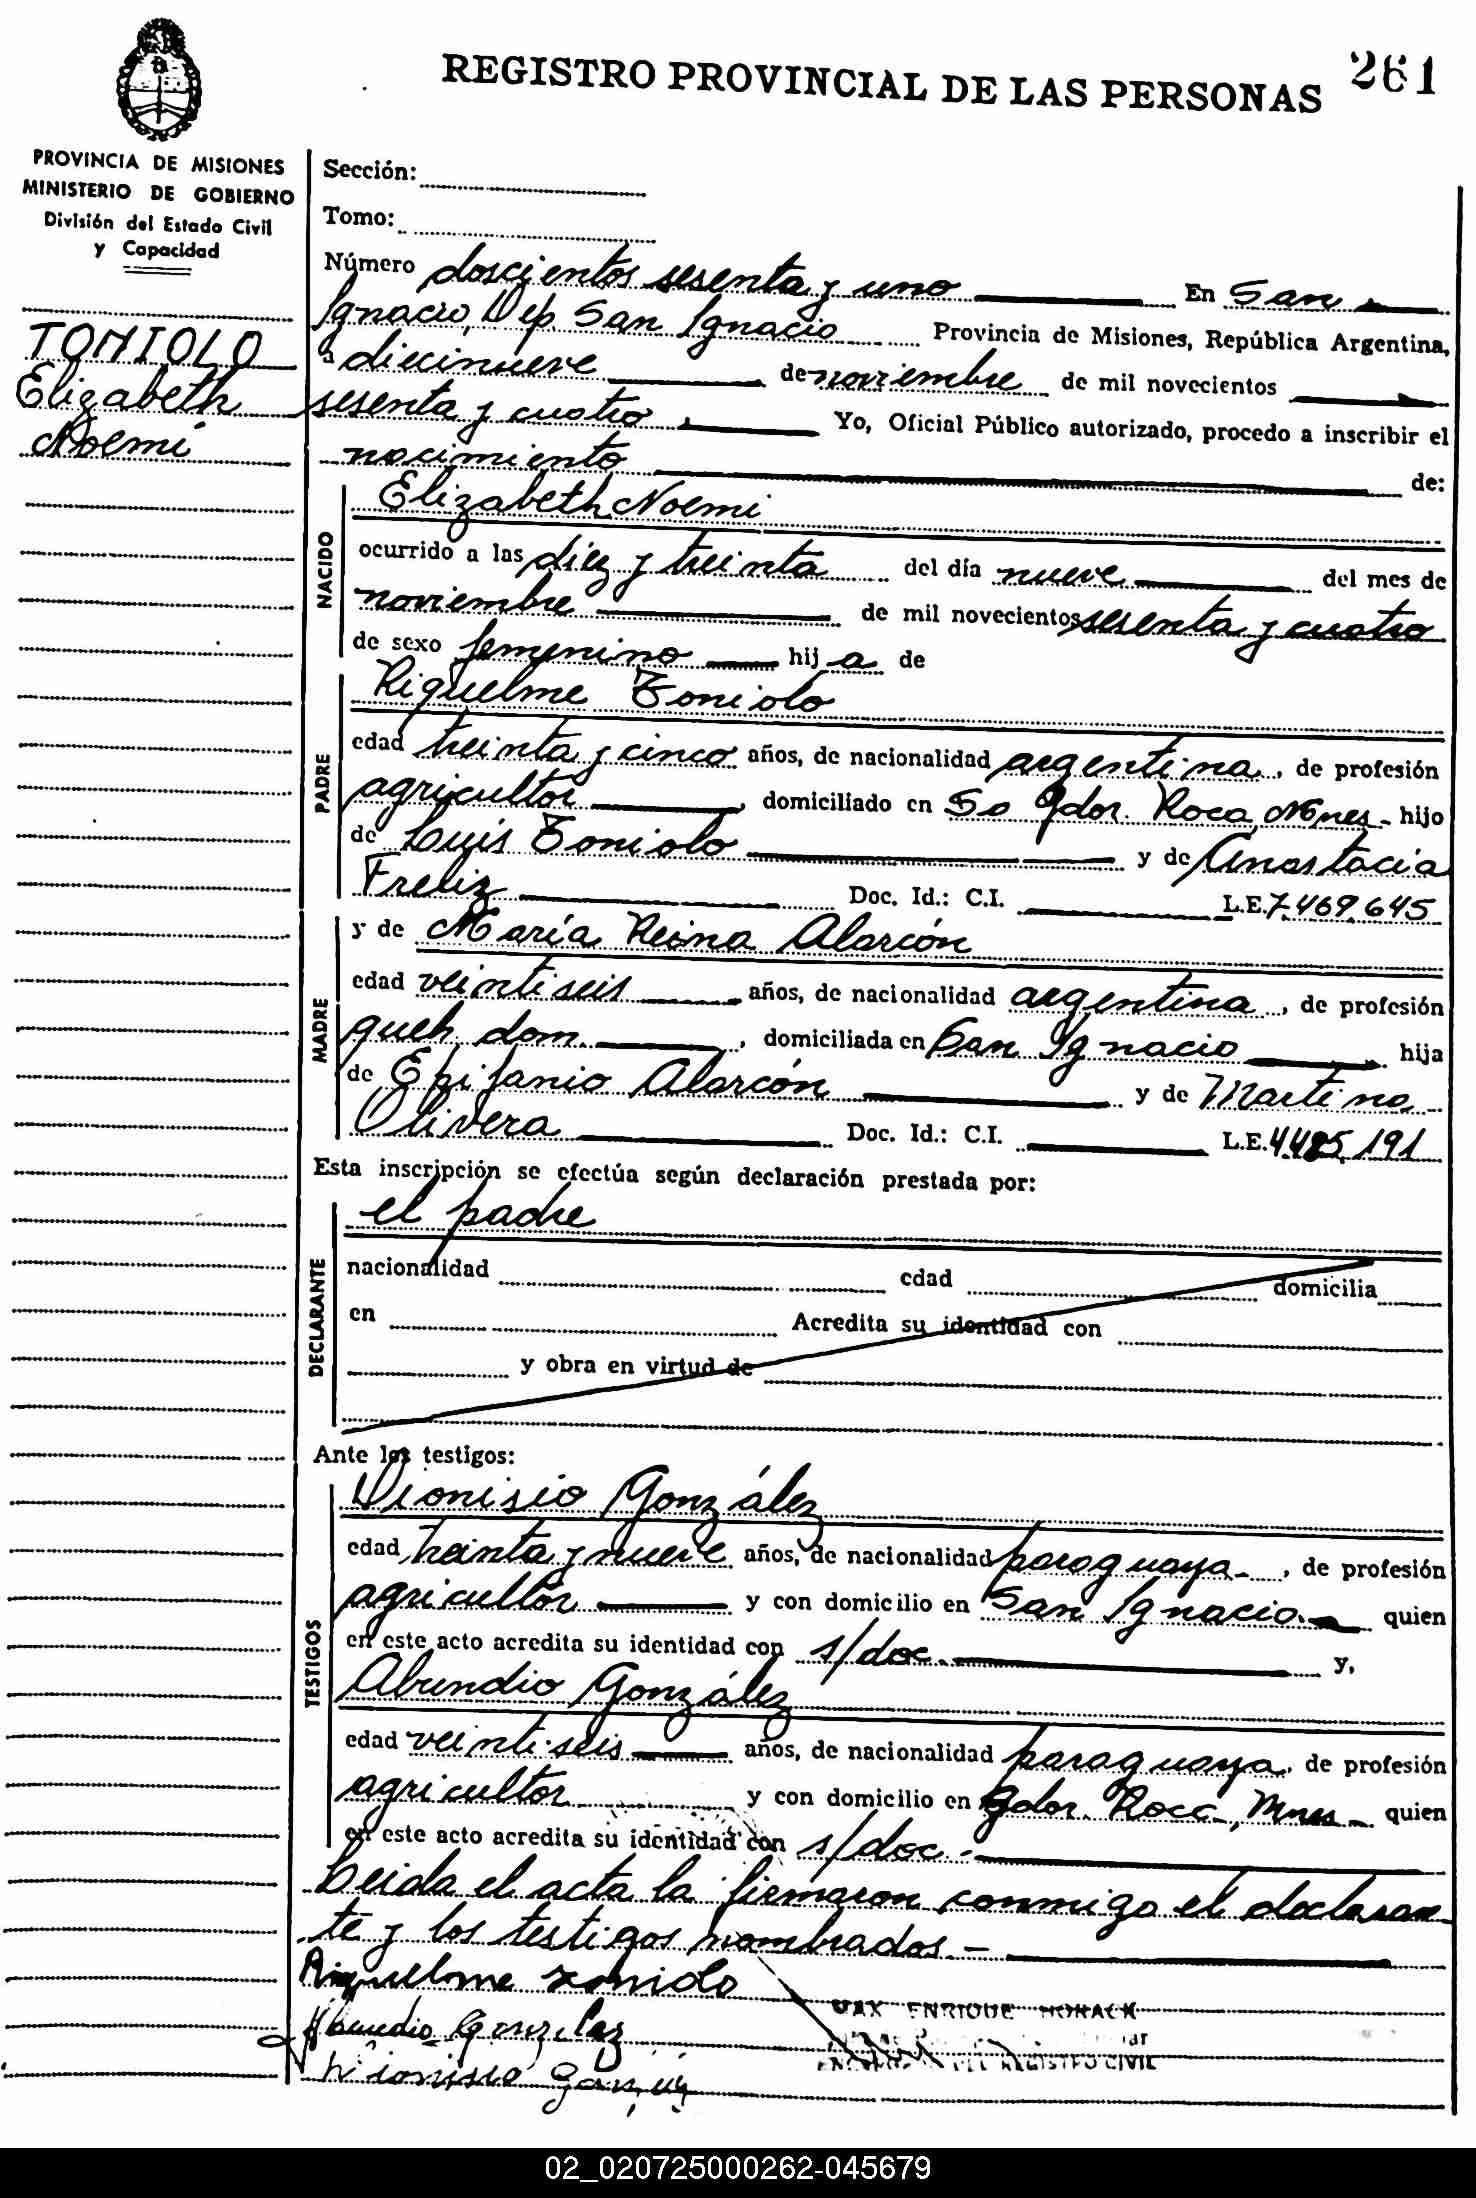 REGISTRO PROVINCIAL DE LAS PERSONAS 261
PROVINCIA DE MISIONES
MINISTERIO DE GOBIERNO
División del Estado Civil
y Capacidad
TONIOLO
Elizabeth
Noemí
Sección:
Tomo:
Número doscientos sesenta y uno En San
Ignacio, Dep. San Ignacio Provincia de Misiones, República Argentina,
a diecinueve de noviembre de mil novecientos
sesenta y cuatro Yo, Oficial Público autorizado, procedo a inscribir el
nacimiento de:
NACIDO
Elizabeth Noemi
ocurrido a las diez y treinta del día nueve del mes de
noviembre de mil novecientos sesenta y cuatro
de sexo femenino hij a de
PADRE
Riquelme Toniolo
edad treinta y cinco años, de nacionalidad argentina, de profesión
agricultor, domiciliado en So Gdor. Roca, Mnes - hijo
de Luis Toniolo y de Anastacia
Freliz Doc. Id.: C.I. L.E. 7.469.645
MADRE
y de María Reina Alarcón
edad veintiseis años, de nacionalidad argentina, de profesión
queh. dom., domiciliada en San Ignacio hija
de Epifanio Alarcón y de Martina
Olivera Doc. Id.: C.I. L.E. 4.485.191
Esta inscripción se efectúa según declaración prestada por:
DECLARANTE
el padre
nacionalidad edad domicilia
en Acredita su identidad con
y obra en virtud de
Ante los testigos:
TESTIGOS
Dionisio González
edad treinta y nueve años, de nacionalidad paraguaya, de profesión
agricultor y con domicilio en San Ignacio quien
en este acto acredita su identidad con s/doc. y,
Abundio González
edad veintiseis años, de nacionalidad paraguaya, de profesión
agricultor y con domicilio en Gdor. Roca, Mnes - quien
en este acto acredita su identidad con s/doc.-
Leida el acta la firmaron conmigo el declaran
te y los testigos nombrados.-
Riquelme Toniolo
Abundio Gonzalez
Dionisio
MAX ENRIQUE HORACK
DEL REGISTRO CIVIL
02_020725000262-045679